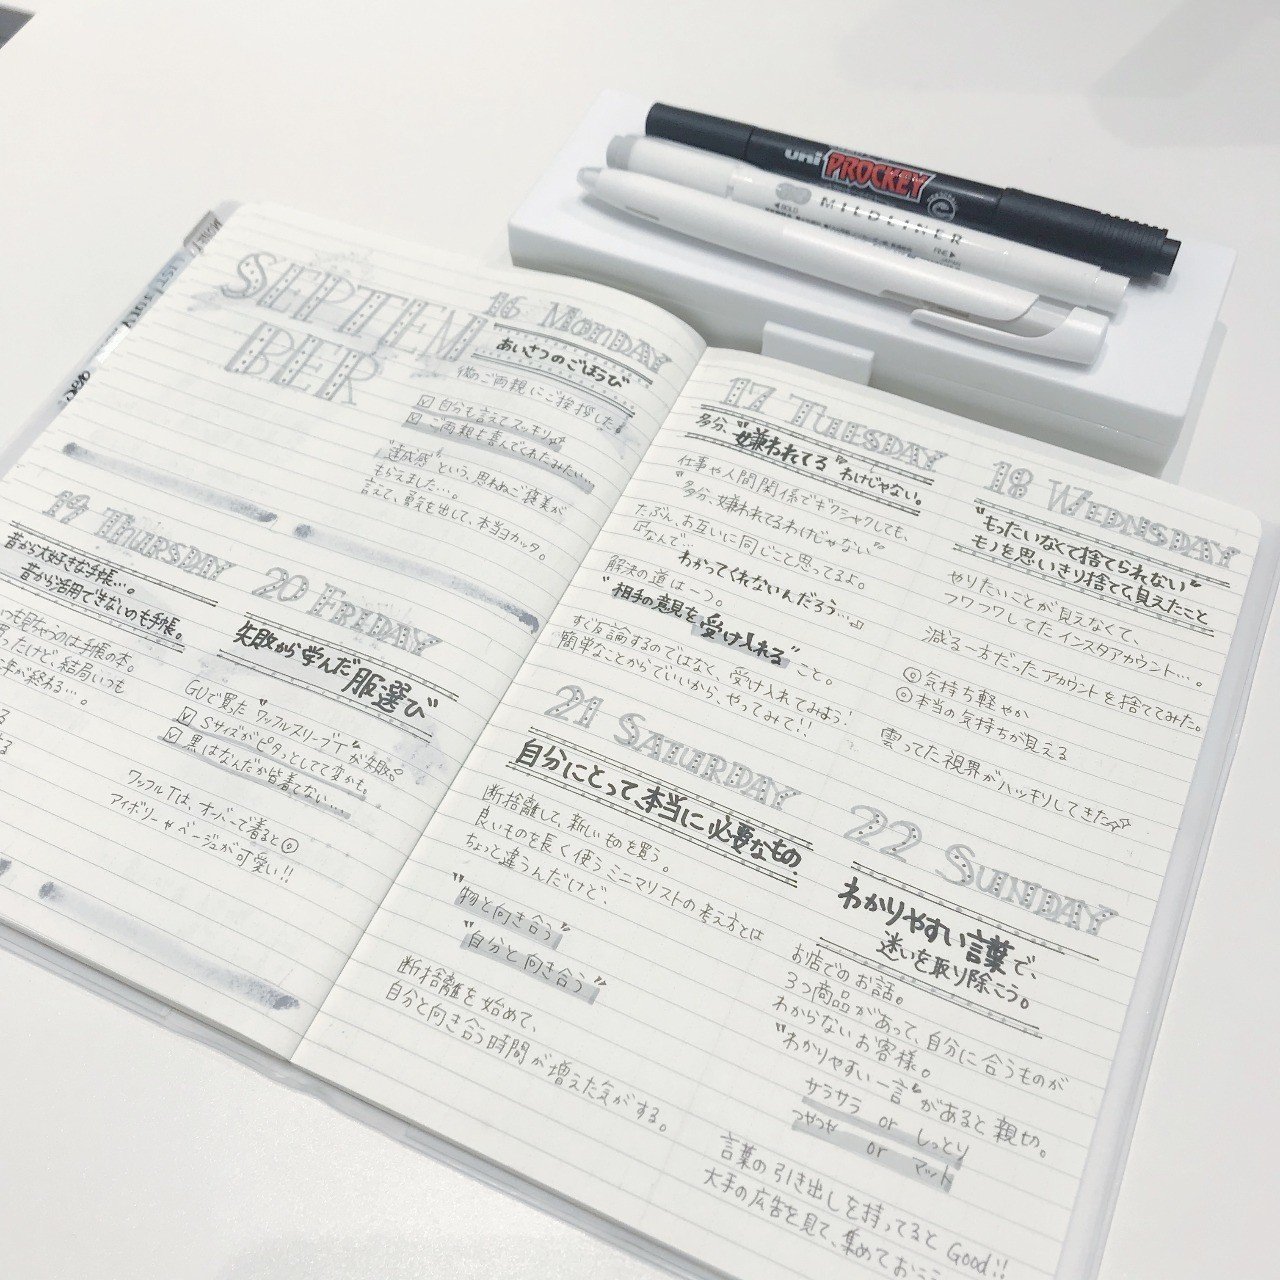 SEPTEM
BER
16 MONDAY
あいさつのごほうび
彼のご両親にご挨拶した。
☑ 自分も言えてスッキリ☆
☑ ご両親も喜んでくれたみたい…
"達成感"という、思わぬご褒美が
もらえました…。
言えて、勇気を出して、本当ヨカッタ。
17 TUESDAY
多分、"嫌われてる"わけじゃない。
仕事や人間関係でギクシャクしても、
"多分、嫌われてるわけじゃない"
たぶん、お互いに同じこと思ってるよ。
『なんで…
わかってくれないんだろう…』
解決の道は一つ。
"相手の意見を受け入れる"こと。
すぐ反論するのではなく、受け入れてみよう!
簡単なことからでいいから、やってみて!!
18 WEDNSDAY
"もったいなくて捨てられない"
モノを思いきり捨てて、見えたこと
やりたいことが見えなくて、
フワフワしてたインスタアカウント…。
減る一方だったアカウントを捨ててみた。
◎気持ち軽やか
◎本当の気持ちが見える
雲ってた視界がハッキリしてきた☆
19 THURSDAY
昔から大好きな手帳…。
昔から活用できないのも手帳。
つも見ちゃうのは手帳の本。
ったけど、結局いつも
年が終わる…。
る
する
20 FRIDAY
失敗から学んだ服選び
GUで買った"ワッフルスリーブT"が失敗。
☑ Sサイズがピタっとしてて変かも。
☑ 黒はなんだか皆着てない…
ワッフルTは、オーバーで着ると◎
アイボリーやベージュが可愛い!!
21 SATURDAY
自分にとって、本当に必要なもの、
断捨離して、新しいものを買う。
良いものを長く使うミニマリストの考え方とは
ちょっと違うんだけど、
"物と向き合う"
"自分と向き合う"
断捨離を始めて、
自分と向き合う時間が増えた気がする。
22 SUNDAY
わかりやすい言葉で、
迷いを取り除こう。
お店でのお話。
3つ商品があって、自分に合うものが
わからないお客様。
"わかりやすい一言"があると親切。
サラサラ or しっとり
つやつや or マット
言葉の引き出しを持ってると Good!!
大手の広告を見て、集めておこう
uni PROCKEY
MILDLINER